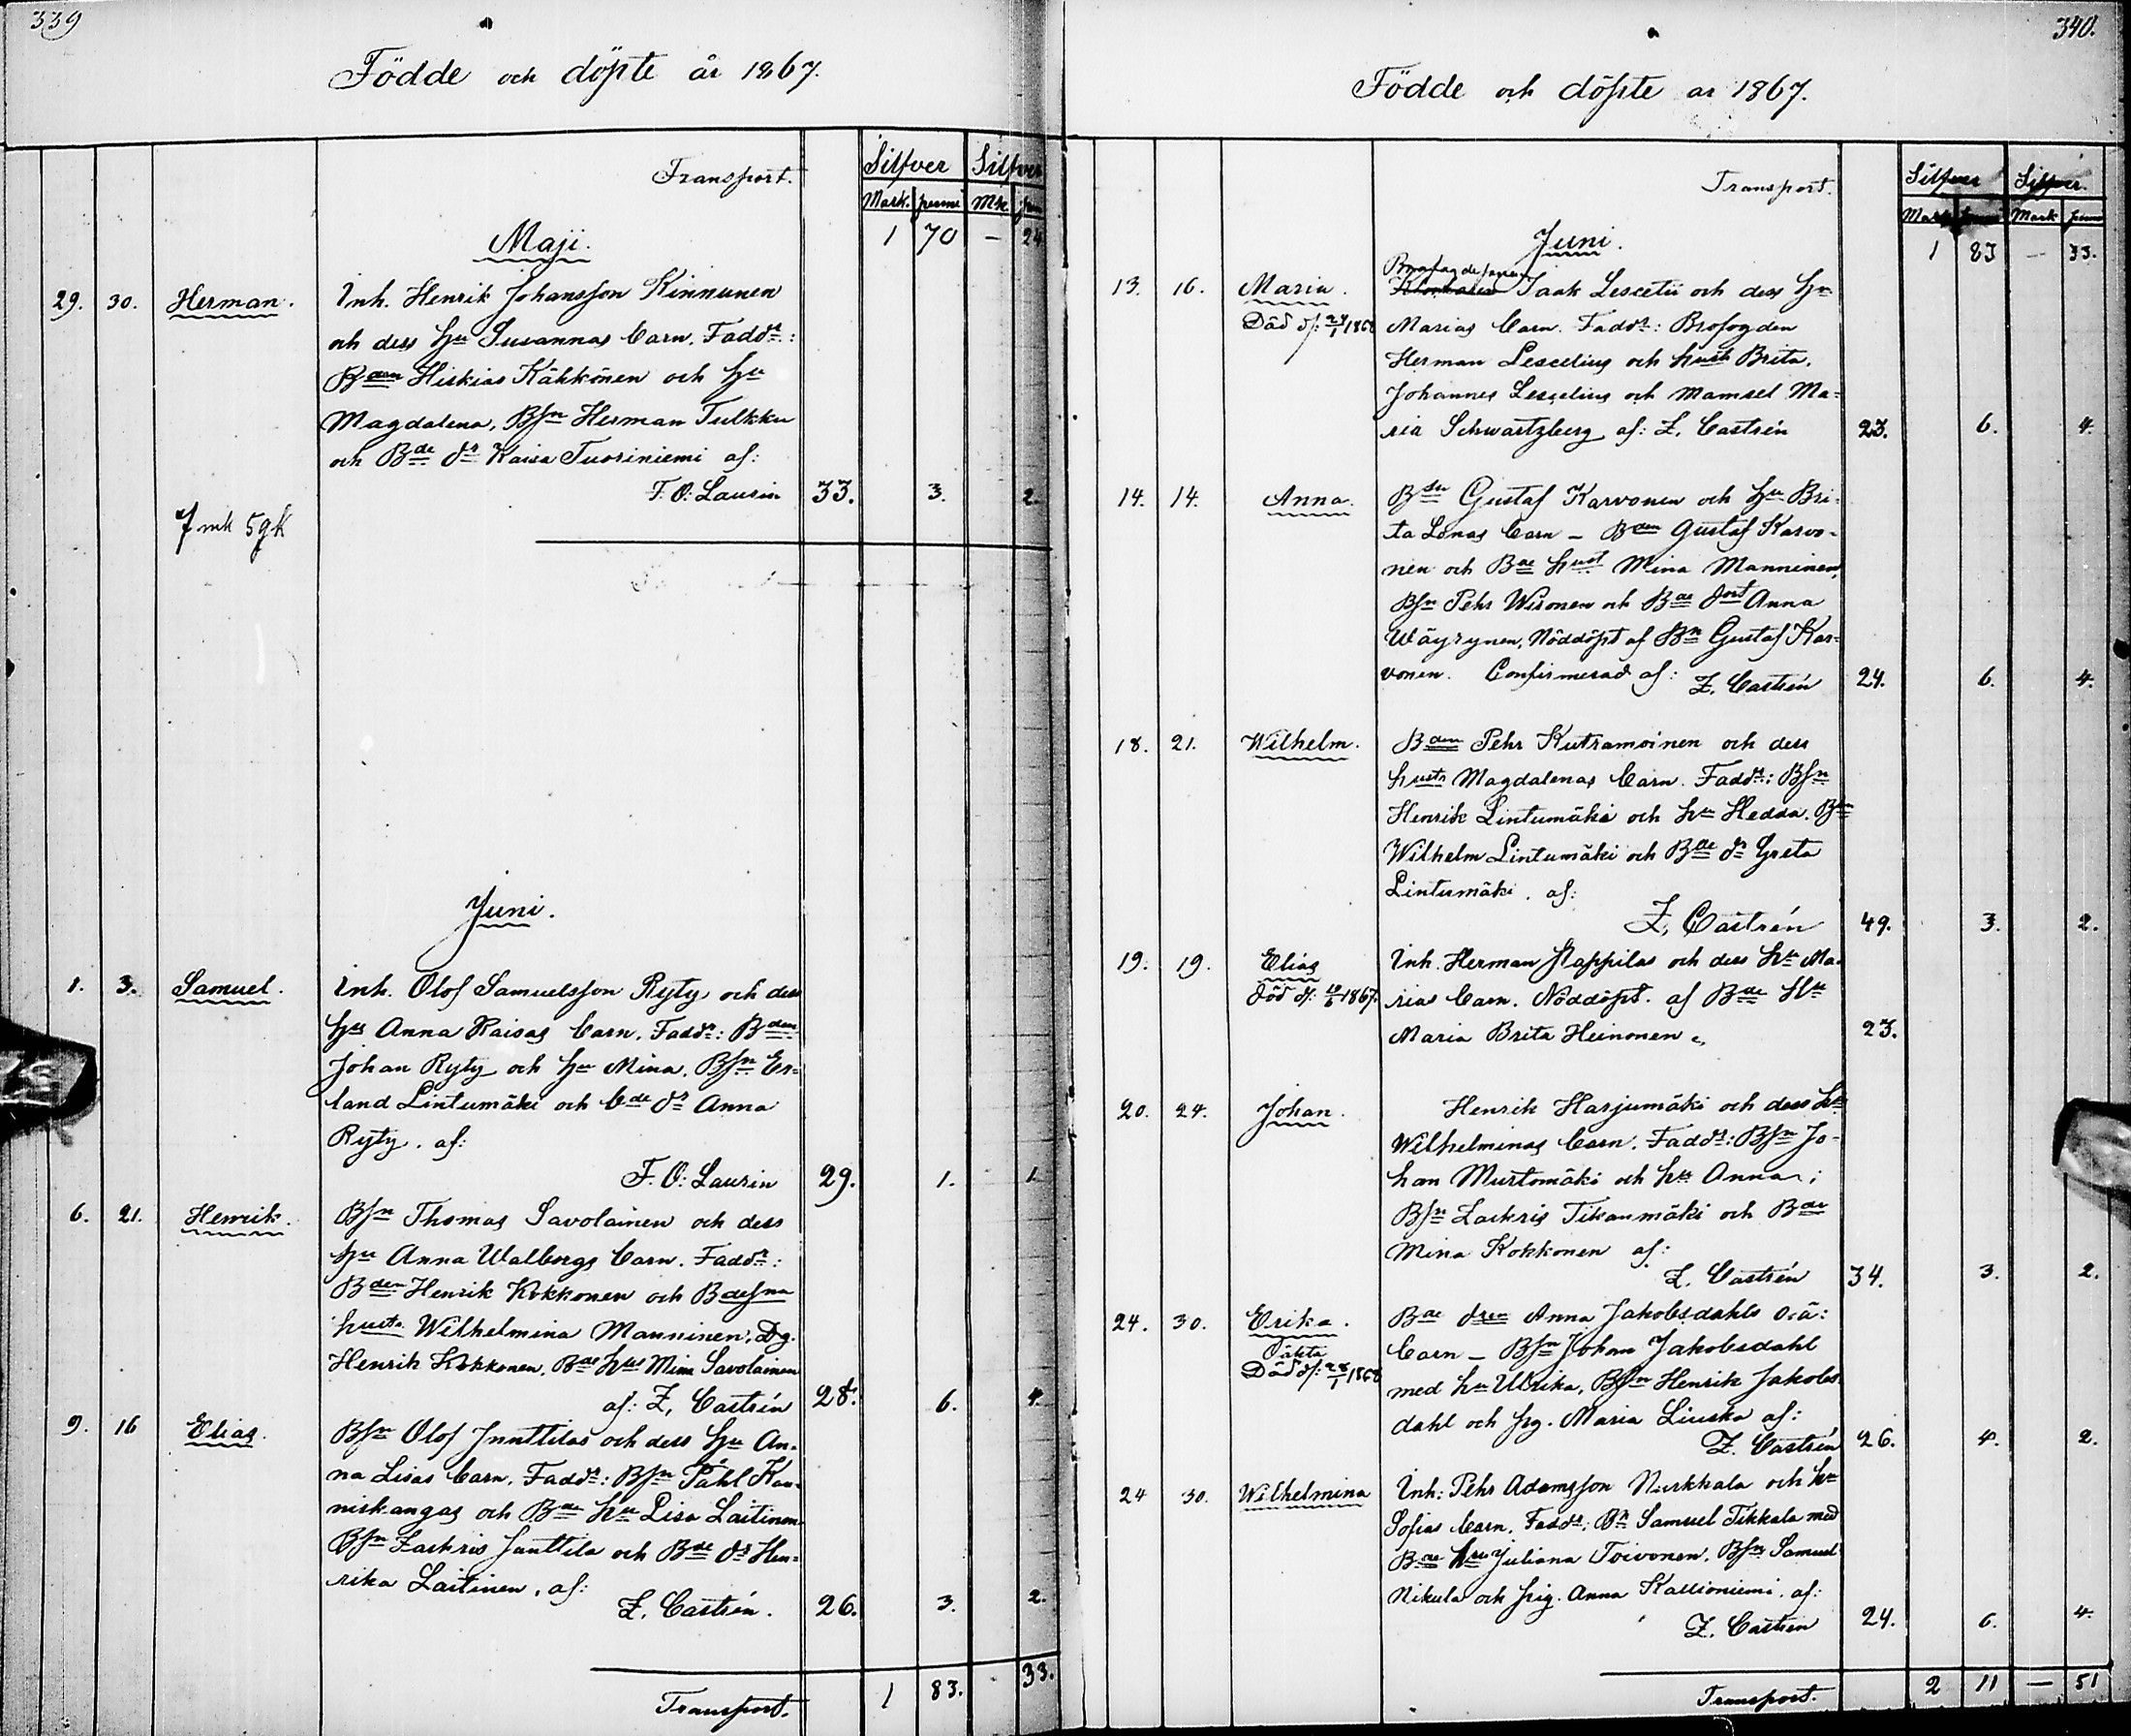 339
Födde och döpte år 1867.
Transport.
Silfver Silfver
Mark. penni Mk. pen
Maji.
1 70 — 24
29. 30. Herman. Inh. Henrik Johansson Kinnunen
och dess Hu Susannas barn. Faddr:
Bden Hiskias Kähkönen och Hu
Magdalena, Bsn Herman Tulkku
och Bde dr Kaisa Tuoriniemi af:
F. O: Laurin 33. 3. 2.
7 mk 59 k
Juni.
1. 3. Samuel. Inh. Olof Samuelsson Ryty och dess
Hus Anna Kaisas barn. Faddr: Bden
Johan Ryty och Hu Mina. Bsn Er=
land Lintumäki och bde dr Anna
Ryty. af:
F. O: Laurin 29. 1. 1
6. 21. Henrik. Bsn Thomas Savolainen och dess
Hu Anna Walborgs barn. Faddr:
Bden Henrik Kokkonen och Bdesna
hustr Wilhelmina Manninen, Dg.
Henrik Kokkonen, Bde hus Mina Savolainen
af: Z. Castrén 28. 6. 4.
9. 16 Elias. Bsn Olof Junttilas och dess Hu An=
na Lisas barn. Faddr: Bsn Påhl Kau=
niskangas och Bde Hu Lisa Laitinen
Bsn Zachris Junttila och Bde dr Hen=
rika Laitinen, af:
Z. Castrén. 26. 3. 2.
Transport. 1 83. - 33.
340.
Födde och döpte ar 1867.
Transport.
Silfver Silfver.
Mark penni Mark penni
Juni.
1 83 — 33.
13. 16. Maria. Isak Lescelii och dess Hu
Död d: 24/1 1868 Marias barn. Faddr: Brofogden
Herman Lescelius och hustr Brita.
Johannes Lescelius och Mamsel Ma=
ria Schwartzberg af: Z. Castrén 23. 6. 4.
14. 14. Anna. Bsn Gustaf Karvonen och Hu Bri=
ta Lenas barn — Bden Gustaf Karvo=
nen och Bde hust Mina Manninen,
Bsn Pehr Wesonen och Bde dort Anna
Wäyrynen, Nöddöpt af Bn Gustaf Kar=
vonen. Confirmerad af: Z. Castrén 24. 6. 4.
18. 21. Wilhelm. Bden Pehr Kutramoinen och dess
hustr Magdalenas barn. Faddr: Bsn
Henrik Lintumäki och hu Hedda. Bsn
Wilhelm Lintumäki och Bde dr Greta
Lintumäki. af:
Z. Castrén 49. 3. 2.
19. 19. Elias Inh. Herman Nappilas och dess Hu Ma=
död d: 19/6 1867. rias barn. Nöddöpt. af Bde Hu
Maria Brita Heinonen. 23.
20. 24. Johan. Henrik Harjumäki och dess Hu
Wilhelminas barn. Faddr: Bsn Jo=
han Murtomäki och hu Anna;
Bsn Zachris Tikanmäki och Bde
Mina Kokkonen af:
Z. Castrén 34. 3. 2.
24. 30. Erika. Bde dren Anna Jakobsdahls o.ä:
Oäkta barn — Bsn Johan Jakobsdahl
Död d: 28/1 1868 med hu Ulrika, Bsn Henrik Jakobs
dahl och pig. Maria Liuska af:
Z. Castrén 26. 4. 2.
24 30. Wilhelmina Inh: Pehr Adamsson Nurkkala och hu
Sofias barn. Faddr: Bn Samuel Tikkala med
Bde hru Juliana Toivonen. Bsn Samuel
Nikula och pig. Anna Kallioniemi. af:
Z. Castrén 24. 6. 4.
Transport. 2 11 — 51